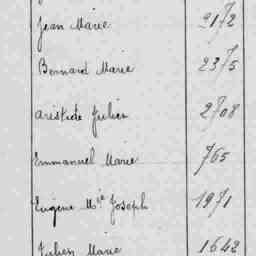 Jean Marie 2172
Bernard Marie 2375
Aristide Julien 2708
Emmanuel Marie 765
Eugène Mie Joseph 1971
Julien Marie 1642